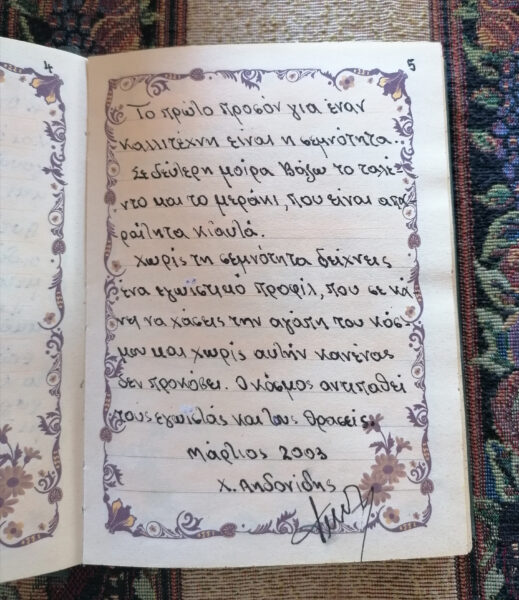 4
5
Το πρώτο προσόν για έναν
καλλιτέχνη είναι η σεμνότητα.
Σε δεύτερη μοίρα βάζω το ταλέ-
ντο και το μεράκι, που είναι απα
ραίτητα κι αυτά.
Χωρίς τη σεμνότητα δείχνεις
ένα εγωιστικό προφίλ, που σε κά
νει να χάσεις την αγάπη του κόσ-
μου και χωρίς αυτήν κανένας
δεν προκόβει. Ο κόσμος αντιπαθεί
τους εγωιστάς και τους θρασείς.
Μάρτιος 2003
Χ. Αηδονίδης